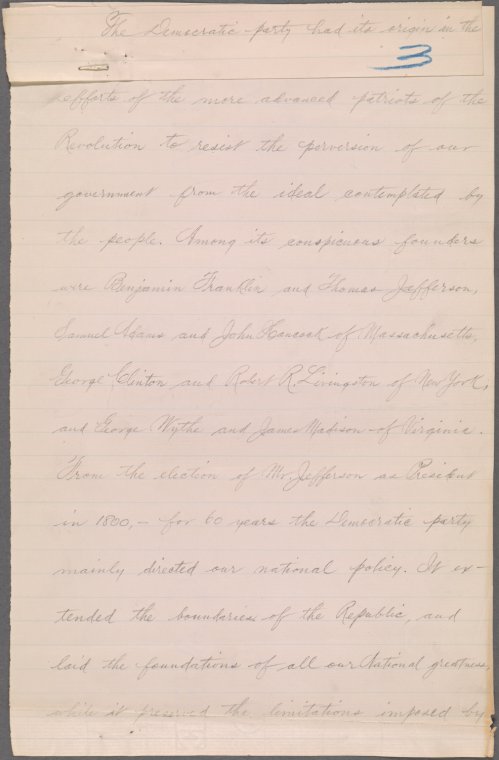 The Democratic party had its origin in the
3
efforts of the more advanced patriots of the
Revolution to resist the perversion of our
government from the ideal contemplated by
the people. Among its conspicuous founders
were Benjamin Franklin and Thomas Jefferson,
Samuel Adams and John Hancock of Massachusetts,
George Clinton and Robert R. Livingston of New York,
and George Wythe and James Madison of Virginia.
From the election of Mr. Jefferson as President
in 1800, – for 60 years the Democratic party
mainly directed our national policy. It ex-
tended the boundaries of the Republic, and
laid the foundations of all our National greatness,
while it preserved the limitations imposed by